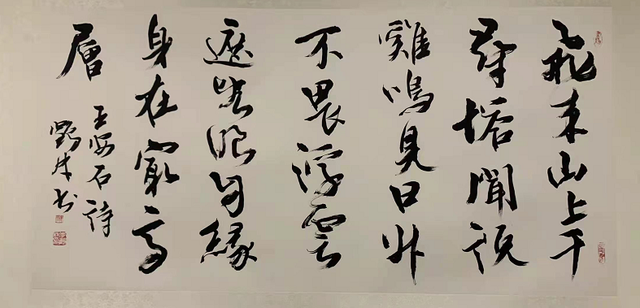 飛来山上千
尋塔聞説
雞鳴見日升
不畏浮雲
遮望眼自緣
身在最高
層
王安石詩
书